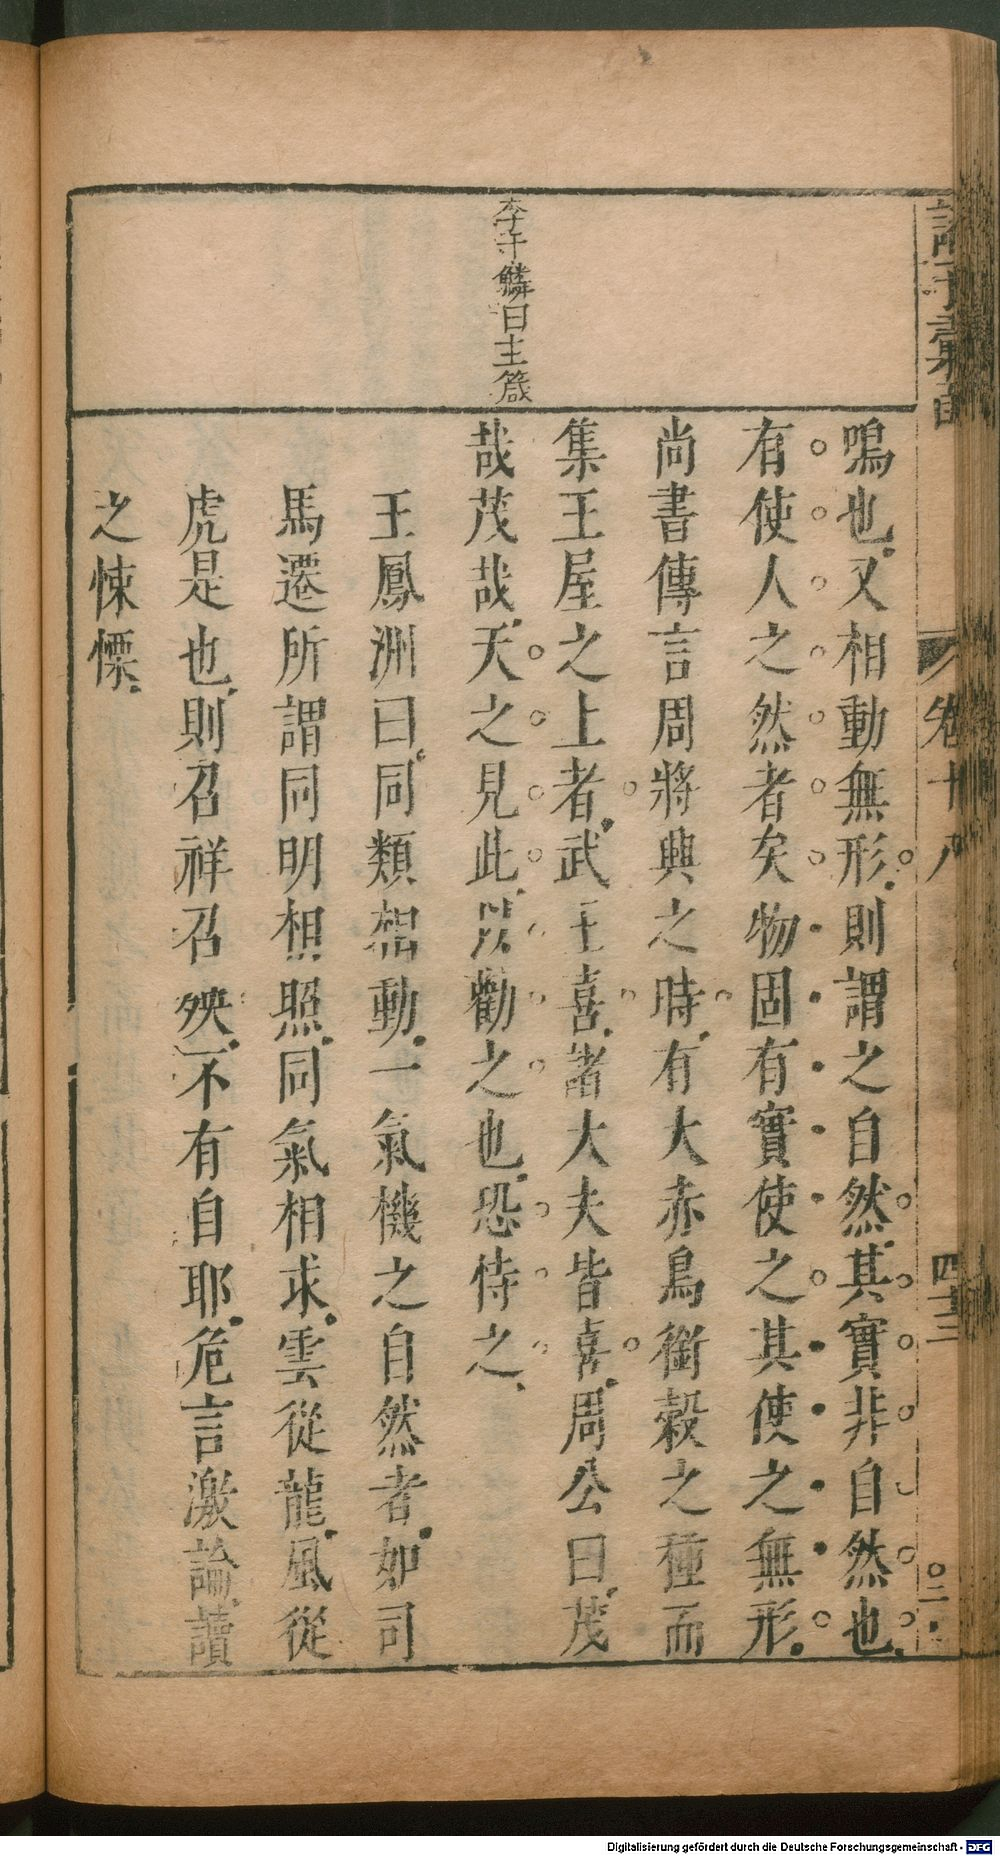 諸子彙函
卷十八
四十三
〇二
李于鱗曰主箴
鳴也又相動無形則謂之自然其實非自然也
有使人之然者矣物固有實使之其使之無形
尚書傳言周將興之時有大赤鳥銜穀之種而
集王屋之上者武王喜諸大夫皆喜周公曰茂
哉茂哉天之見此以勸之也恐恃之
王鳳洲曰同類相動一氣機之自然者如司
馬遷所謂同明相照同氣相求雲從龍風從
虎是也則召祥召殃不有自耶危言激論讀
之悚慄
Digitalisierung gefördert durch die Deutsche Forschungsgemeinschaft - DFG